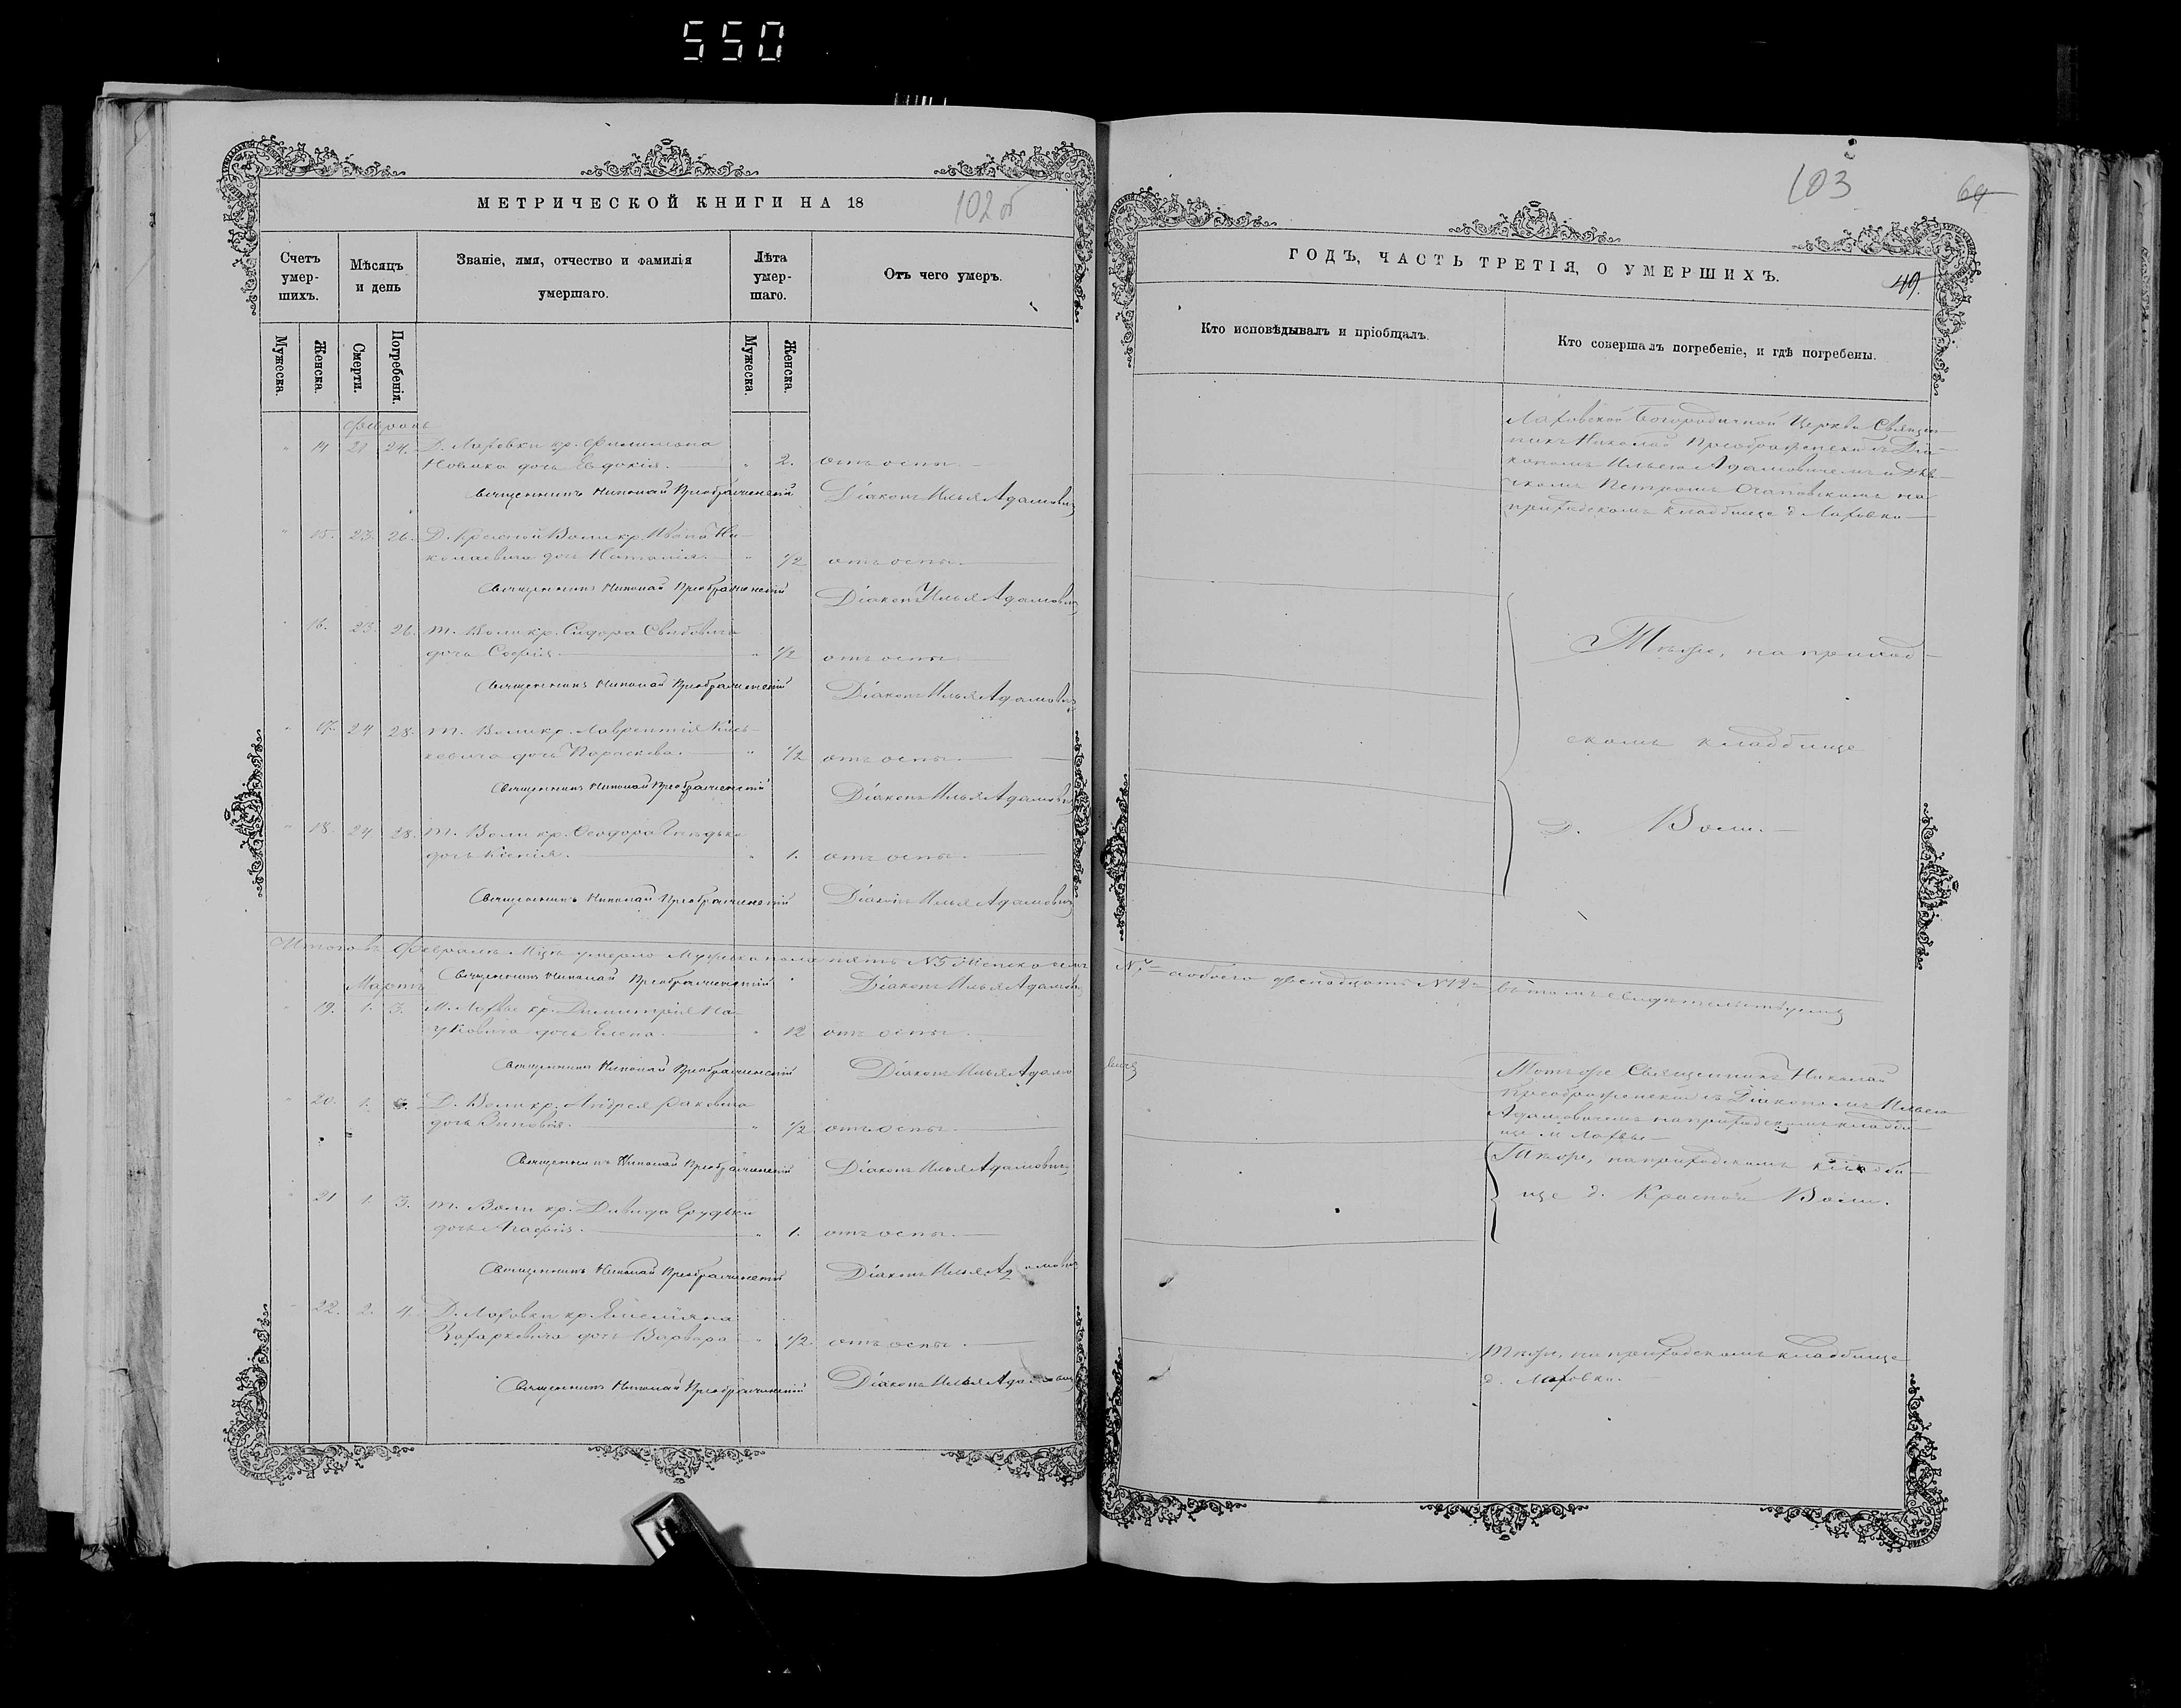 550
МЕТРИЧЕСКОЙ КНИГИ НА 18
102 об
Счетъ умер- шихъ.
Мѣсяцъ и день
Званіе, имя, отчество и фамилія умершаго.
Лѣта умер- шаго.
Отъ чего умеръ.
Мужеска.
Женска.
Смерти.
Погребенія.
Мужеска.
Женска.
Февраль
14 21 24. Д. Лаховки кр. Филимона
Новика дочь Евдокія. 2. отъ оспы.
Священникъ Николай Преображенскій Діаконъ Илья Адамовичъ
15. 23. 26. Д. Красной Воли кр. Ивана Ни-
колаевича дочь Наталія. 1/2 отъ оспы.
Священникъ Николай Преображенскій Діаконъ Илья Адамовичъ
16. 23. 26. т. Воли кр. Сидора
дочь Софія. 1/2 отъ оспы.
Священникъ Николай Преображенскій Діаконъ Илья Адамовичъ
17. 24 28. т. Воли кр. Лаврентія
дочь Параскева. 1/2 отъ оспы.
Священникъ Николай Преображенскій Діаконъ Илья Адамовичъ
18. 24 28. т. Воли кр. Ѳеодора
дочь Ксенія. 1. отъ оспы.
Священникъ Николай Преображенскій Діаконъ Илья Адамовичъ
Итого въ Февралѣ М-цѣ умерло Мужеска пола пять №5 Женска
Священникъ Николай Преображенскій Діаконъ Илья Адамо
Мартъ
19. 1. 3. М. Лахвы кр. Димитрія На-
уковича дочь Елена. 12 отъ оспы.
Священникъ Николай Преображенскій Діаконъ Илья Адамо
20. 1. 3. Д. Воли кр. Андрея Раковича
дочь Зиновія. 1/2 отъ оспы.
Священникъ Николай Преображенскій Діаконъ Илья Адамовичъ
21 1. 3. т. Воли кр. Давида
дочь Агафія. 1. отъ оспы.
Священникъ Николай Преображенскій Діаконъ Илья Адамовичъ
22. 2. 4. Д. Лаховки кр. Емеліана
Захаркевича дочь Варвара 1/2 отъ оспы.
Священникъ Николай Преображенскій Діаконъ Илья Адамовичъ
103
64
ГОДЪ, ЧАСТЬ ТРЕТІЯ, О УМЕРШИХЪ.
49.
Кто исповѣдывалъ и пріобщалъ.
Кто совершалъ погребеніе, и гдѣ погребены.
Лаховской Богородичной Церкви Священ-
никъ Николай Преображенскій съ Діа-
кономъ Ильею Адамовичемъ и
Петромъ на
приходскомъ кладбищѣ д. Лаховки
Тѣже, на приход-
скомъ кладбищѣ
д. Воли.
обоего двенадцать №12 въ томъ свидѣтельствуемъ
вичъ
Тотъ же Священникъ Николай
Преображенскій съ Діакономъ Ильею
Адамовичемъ на приходскомъ кладби-
щѣ м. Лахвы
Тѣже, на приходскомъ кладби-
щѣ д. Красной Воли.
Тѣже, на приходскомъ кладбищѣ
д. Лаховки.